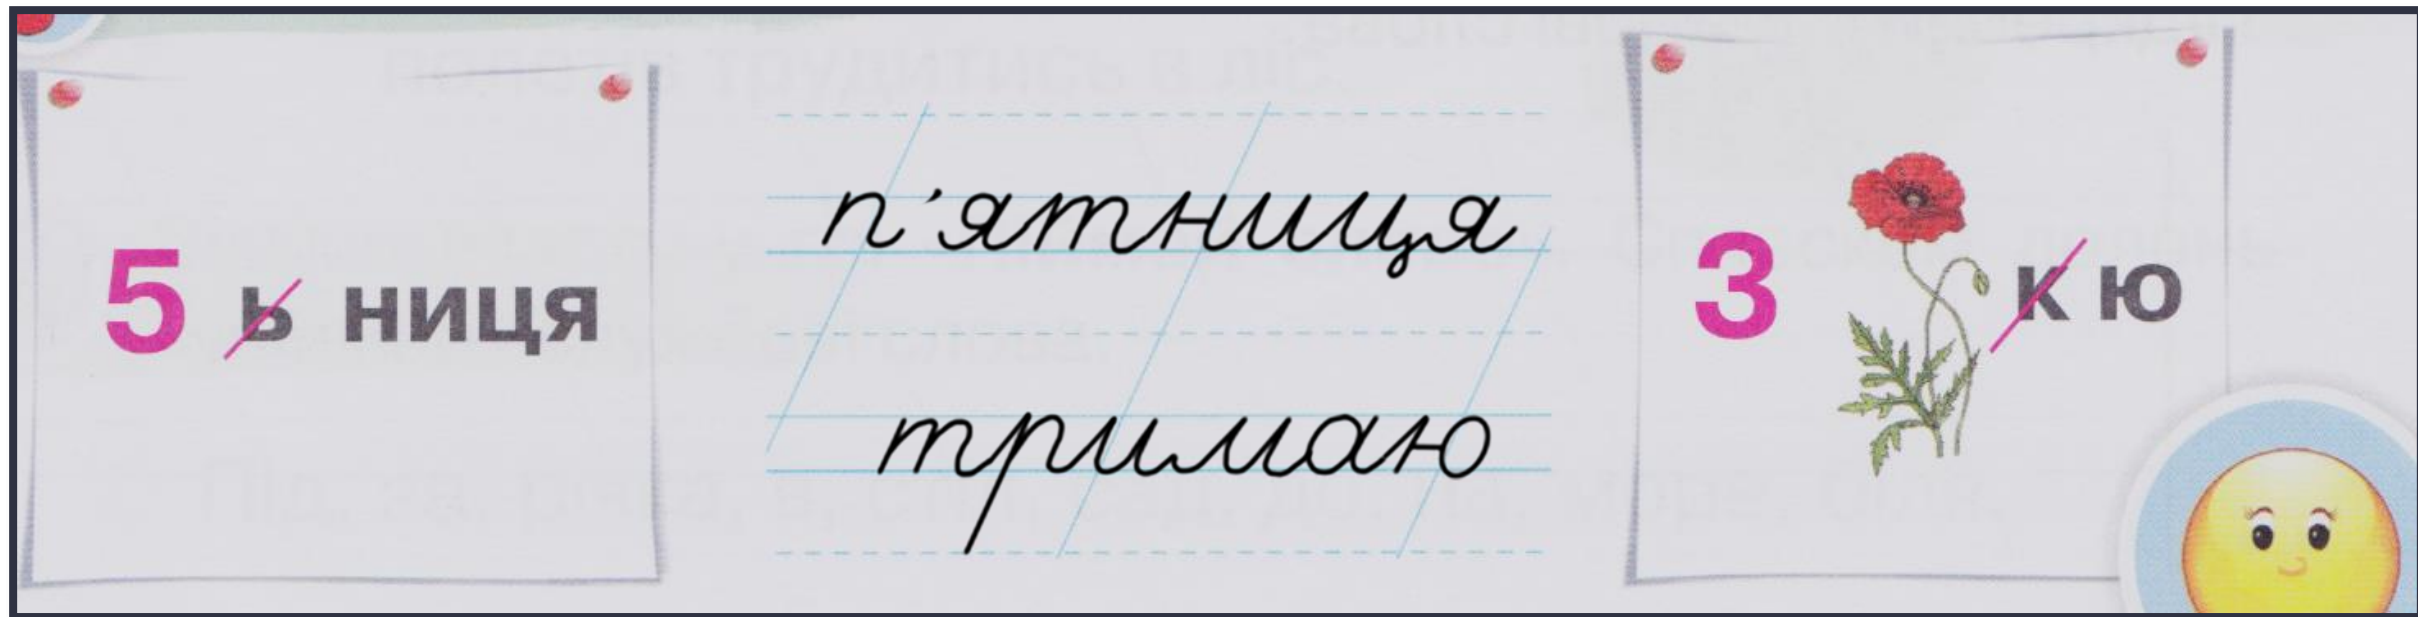 5 ь ниця
п'ятниця
тримаю
3 к ю